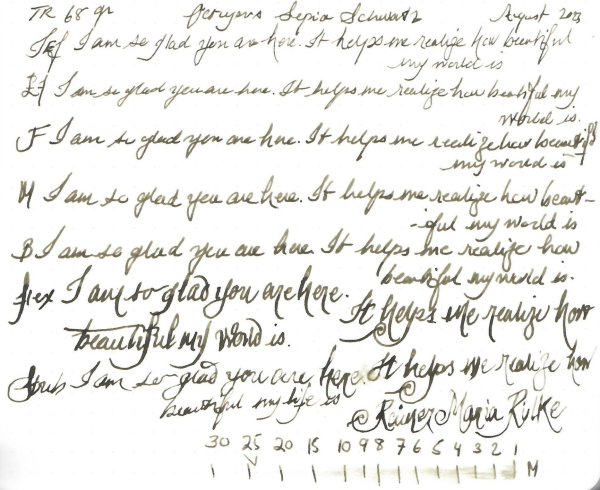 TR 68 gr Octopus Sepia Schwarz August 2023
EEF I am so glad you are here. It helps me realize how beautiful
my world is
EF I am so glad you are here. It helps me realize how beautiful my
world is.
F I am so glad you are here. It helps me realize how beautiful
my world is
M I am so glad you are here. It helps me realize how beaut-
-iful my world is
B I am so glad you are here. It helps me realize how
beautiful my world is.
flex I am so glad you are here. It helps me realize how
beautiful my world is.
Stub I am so glad you are here. It helps me realize how
beautiful my life is
Rainer Maria Rilke
30 25 20 15 10 9 8 7 6 5 4 3 2 1
M